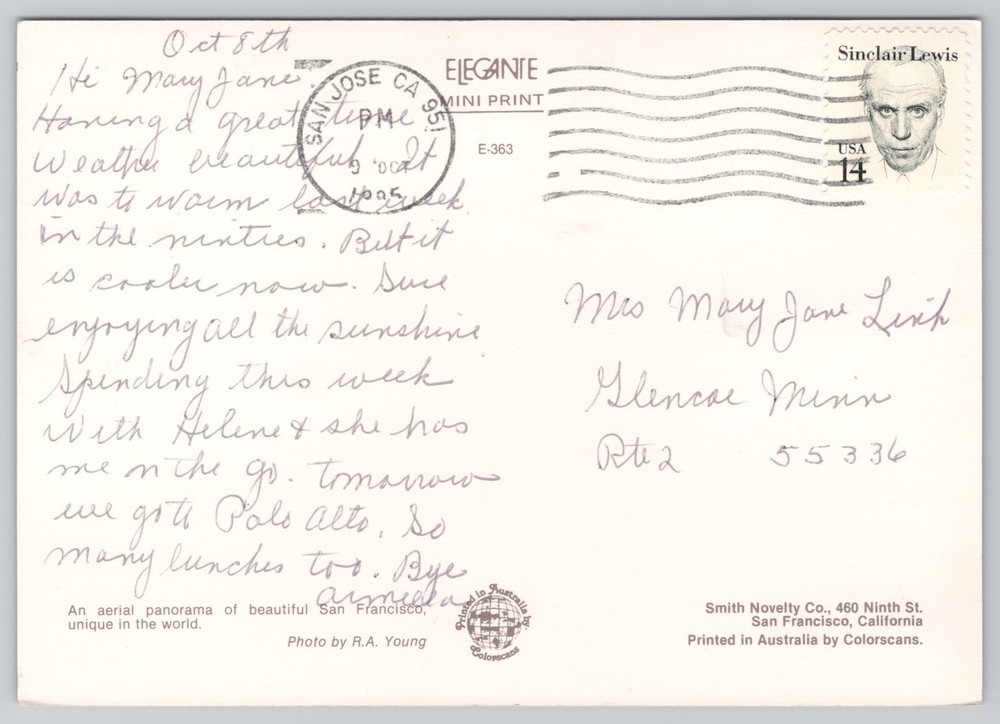 Oct 8th
Hi Mary Jane
Having a great time
Weather beautiful. It
was to warm last week
in the nineties. But it
is cooler now. Sure
enjoying all the sunshine
Spending this week
with Helene & she has
me n the go. tomorrow
we go to Palo Alto. So
many lunches too. Bye
An aerial panorama of beautiful San Francisco,
unique in the world.
Photo by R.A. Young
ELEGANTE
MINI PRINT
E-363
SAN JOSE CA 951
PM
9 OCT
Sinclair Lewis
USA
14
Mrs Mary Jane
Glencoe Minn
Rte 2 55336
Printed in Australia by:
Colorscans
Smith Novelty Co., 460 Ninth St.
San Francisco, California
Printed in Australia by Colorscans.